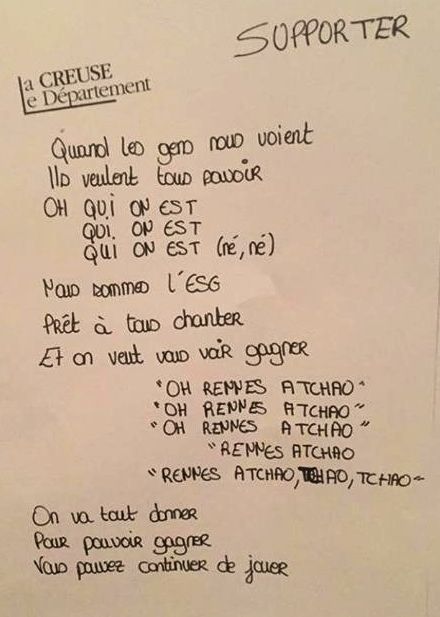 SUPPORTER
la CREUSE
le Département
Quand les gens nous voient
Ils veulent tous savoir
OH QUI ON EST
QUI ON EST
QUI ON EST (né, né)
Nous sommes l'ESG
Prêt à tous chanter
Et on veut vous voir gagner
"OH RENNES ATCHAO"
"OH RENNES ATCHAO"
"OH RENNES ATCHAO"
"RENNES ATCHAO
"RENNES ATCHAO, TCHAO, TCHAO"
On va tout donner
Pour pouvoir gagner
Vous pouvez continuer de jouer